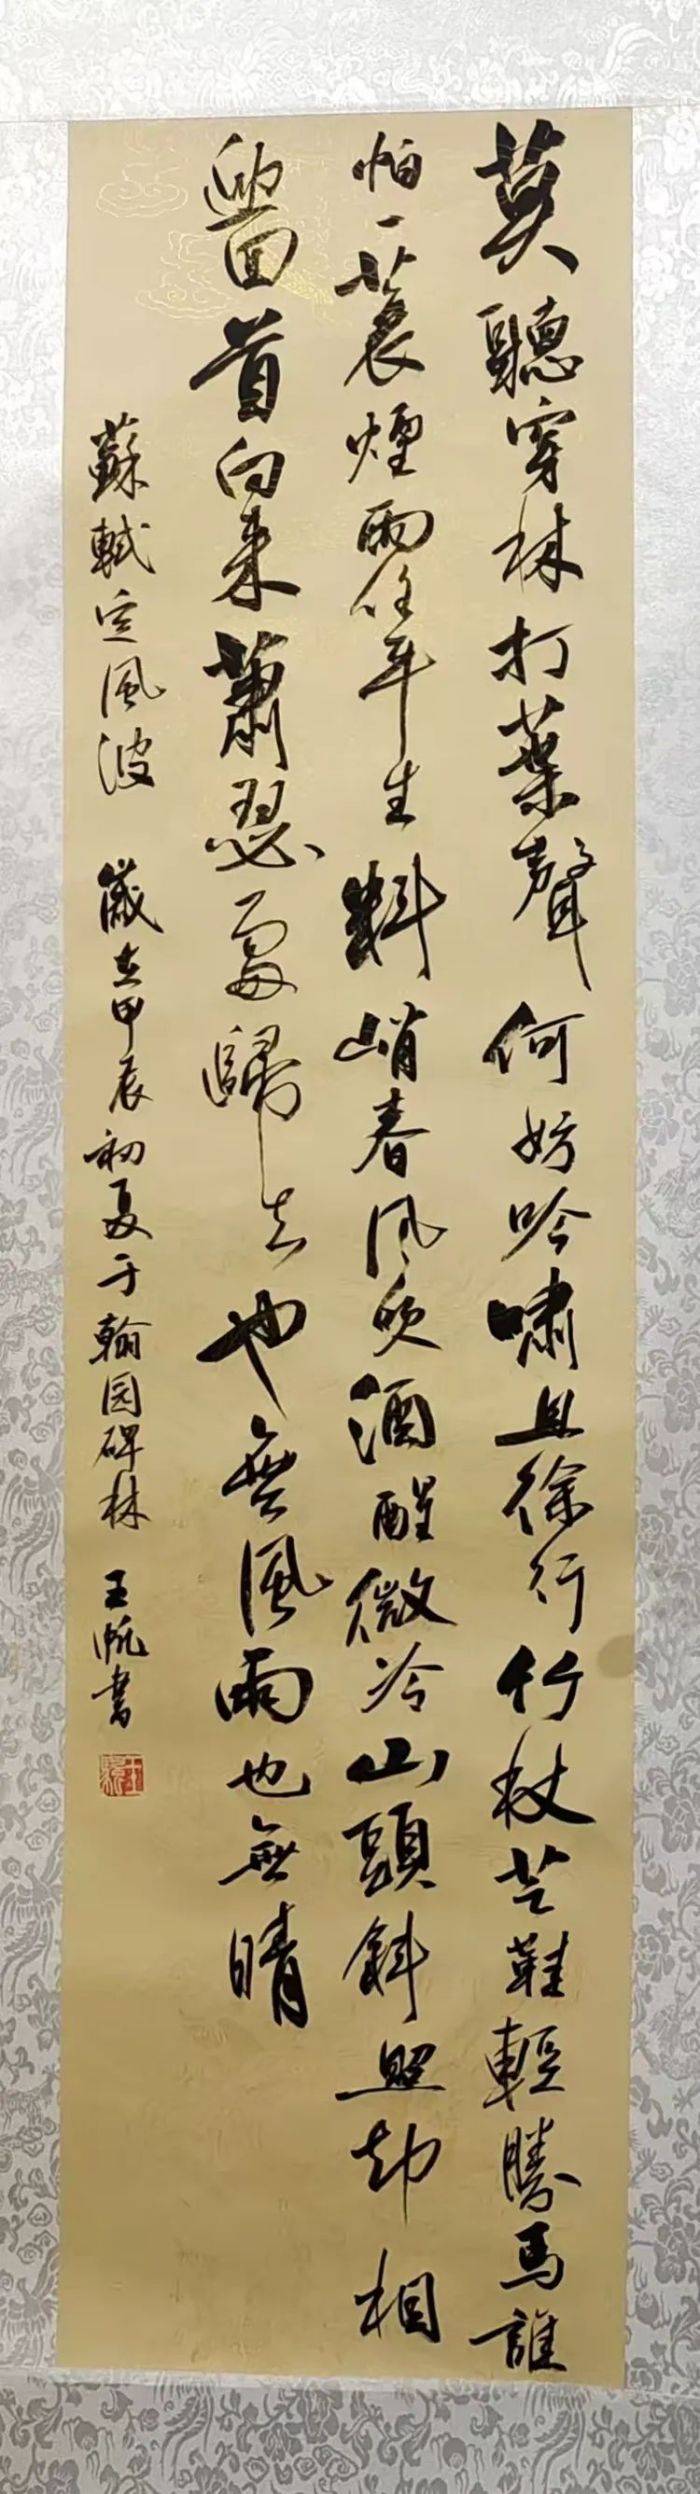 莫聽穿林打葉聲何妨吟嘯且徐行竹杖芒鞋輕勝馬誰
怕一蓑煙雨任平生料峭春風吹酒醒微冷山頭斜照却相
迎回首向来蕭瑟處歸去也無風雨也無晴
蘇軾定風波 歲在甲辰初夏于翰园碑林 王帆書